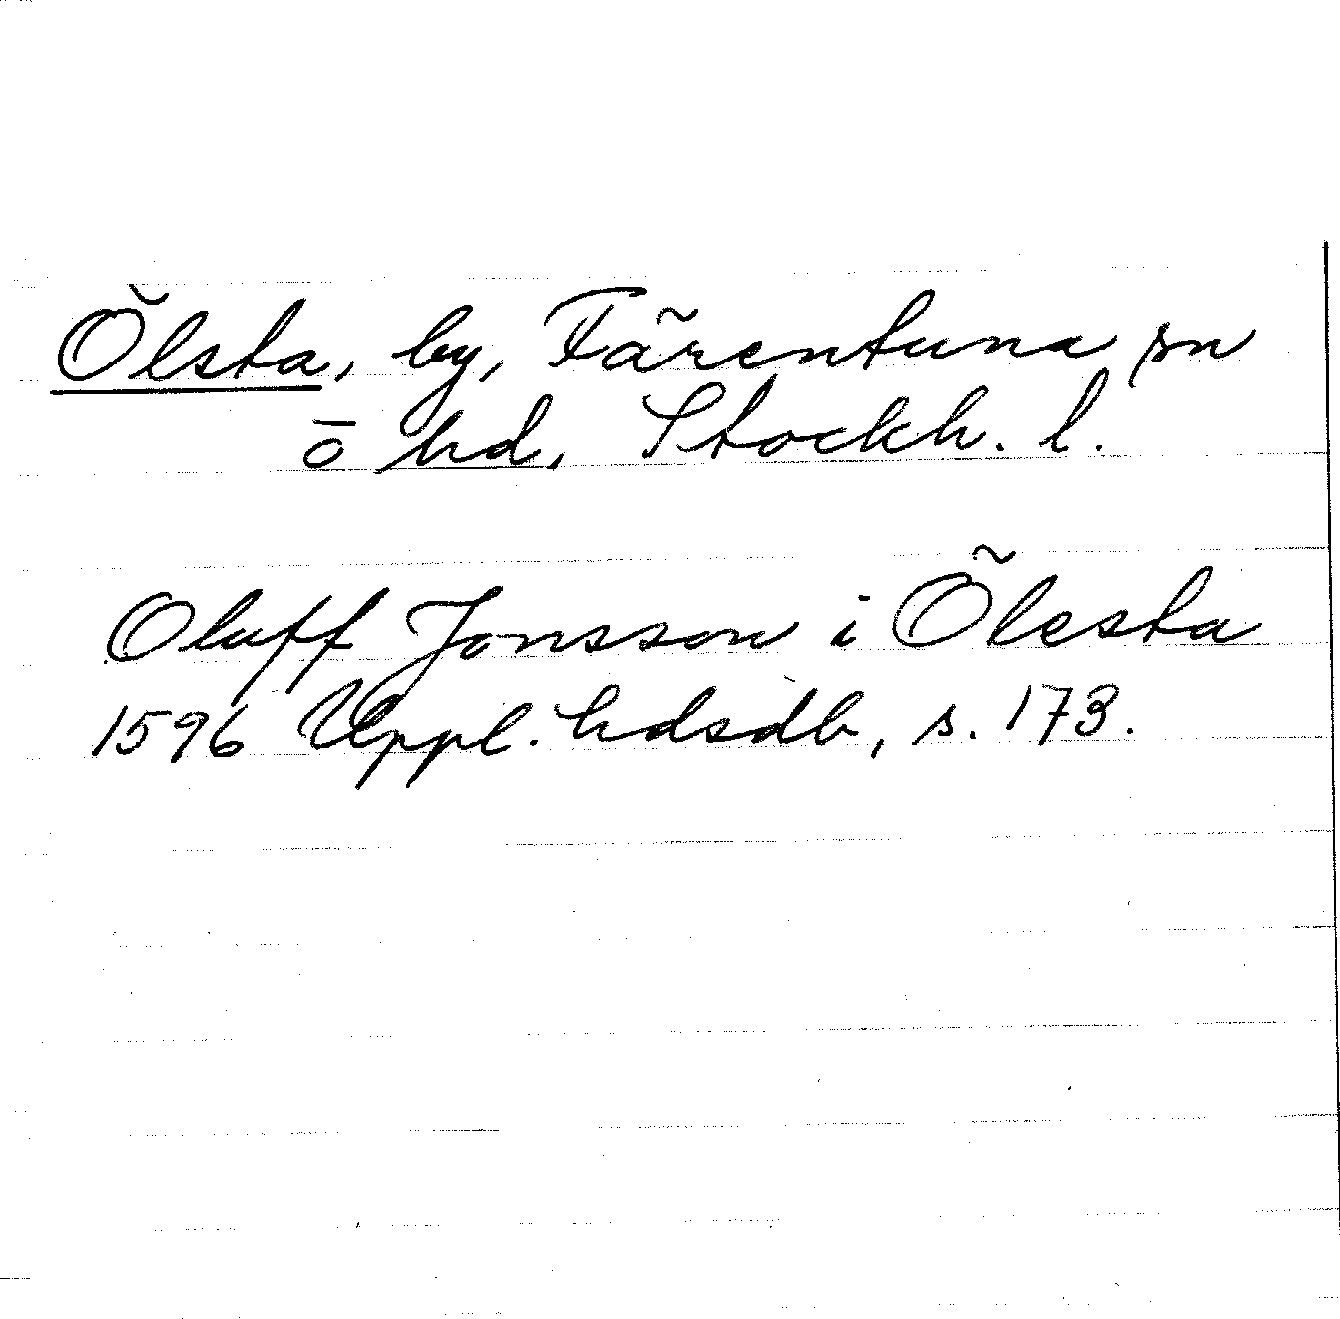 Ölsta, by, Färentuna sn
ö hd, Stockh. l.
Oluff Jonsson i Ölesta
1596 Uppl. hdsdb, s. 173.